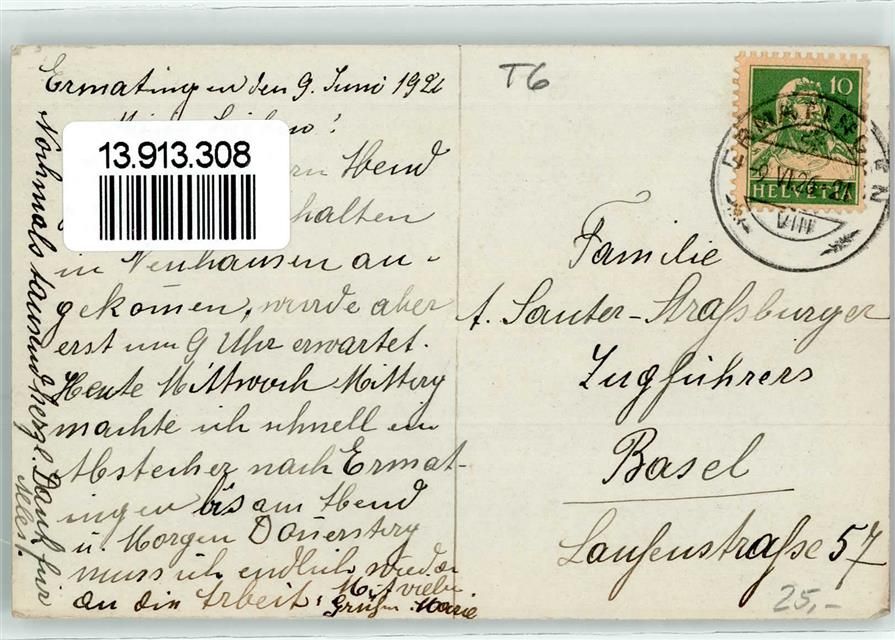 Ermatingen den 9. Juni 1926
13.913.308
Abend
halten
in Neuhausen an-
gekomen, wurde aber
erst um 9 Uhr erwartet.
Heute Mittwoch Mittag
machte ich schnell ein
Abstecher nach Ermat-
ingen bis am Abend
u. Morgen Donnerstag
muss ich endlich wieder
an die Arbeit. Mit vielen
Grüßen. Marie
Nochmals tausend herzl. Dank für
Alles!
T6
10
HELVETIA
ERMATINGEN
VIII
Familie
A. Sauter-Straßburger
Zugführers
Basel
Laufenstraße 57
25,-